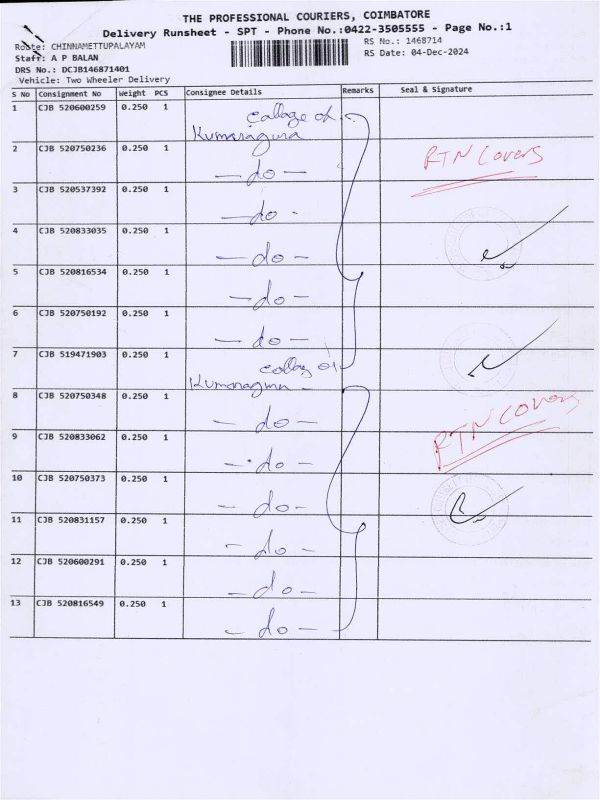 THE PROFESSIONAL COURIERS, COIMBATORE
Delivery Runsheet - SPT - Phone No.:0422-3505555 - Page No.:1
Route: CHINNAMETTUPALAYAM
RS No.: 1468714
Staff: A P BALAN
RS Date: 04-Dec-2024
DRS No.: DCJB146871401
Vehicle: Two Wheeler Delivery
S No Consignment No Weight PCS Consignee Details Remarks Seal & Signature
1 CJB 520600259 0.250 1 collage of
Kumaraguru
2 CJB 520750236 0.250 1 RTN Covers
- do -
3 CJB 520537392 0.250 1
- do -
4 CJB 520833035 0.250 1
- do -
5 CJB 520816534 0.250 1
- do -
6 CJB 520750192 0.250 1
- do -
7 CJB 519471903 0.250 1 collag of
Kumaraguru
8 CJB 520750348 0.250 1 RTN Covers
- do -
9 CJB 520833062 0.250 1
- do -
10 CJB 520750373 0.250 1
- do -
11 CJB 520831157 0.250 1
- do -
12 CJB 520600291 0.250 1
- do -
13 CJB 520816549 0.250 1
- do -